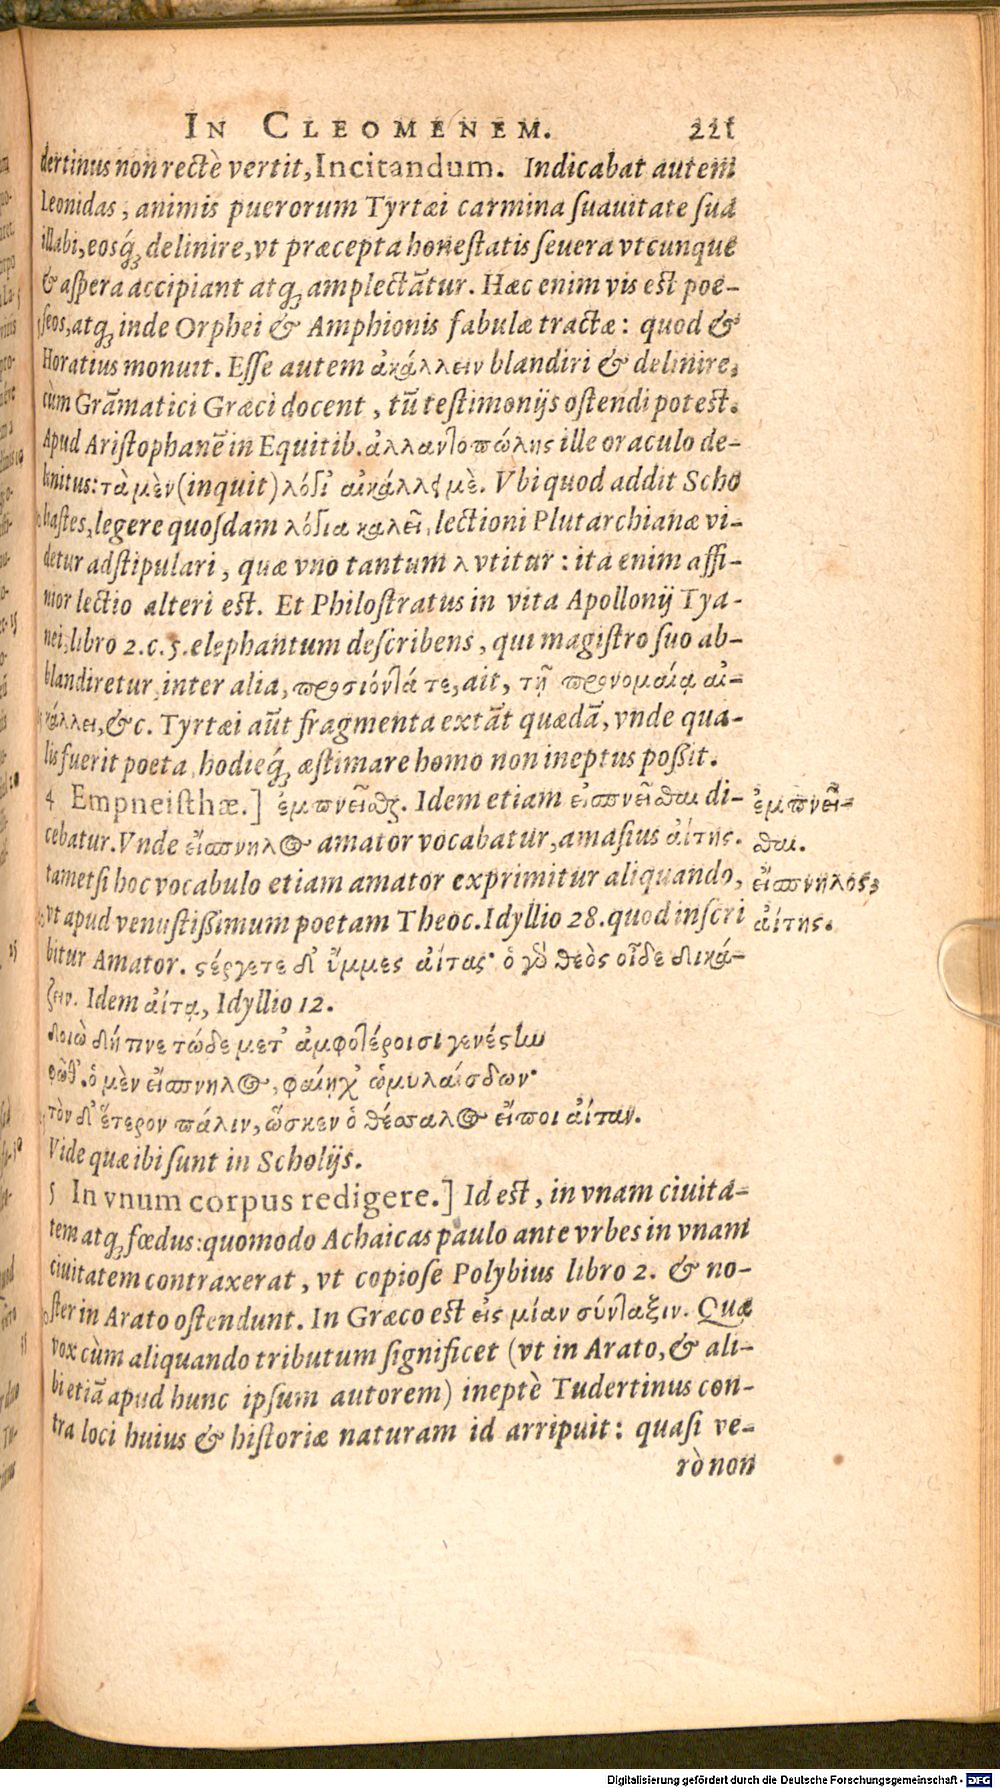 IN CLEOMENEM. 221
dertinus non rectè vertit, Incitandum. Indicabat autem
Leonidas, animis puerorum Tyrtæi carmina suauitate sua
illabi, eosq́; delinire, vt præcepta honestatis seuera vtcunque
& aspera accipiant atq; amplectãtur. Hæc enim vis est poe-
seos, atq; inde Orphei & Amphionis fabulæ tractæ: quod &
Horatius monuit. Esse autem ἀικάλλειν blandiri & delinire,
cùm Grãmatici Græci docent, tũ testimonijs ostendi potest.
Apud Aristophanẽ in Equitib. ἀλλαντοπώλης ille oraculo de-
linitus: τὰ μὲν (inquit) λόγι' αἰκάλλει μὲ. Vbi quod addit Scho
liastes, legere quosdam λόγια καλεῖ, lectioni Plutarchianæ vi-
detur adstipulari, quæ vno tantum λ vtitur: ita enim affi-
nior lectio alteri est. Et Philostratus in vita Apollonij Tya-
nei, libro 2. c. 5. elephantum describens, qui magistro suo ab-
blandiretur, inter alia, προσιόντά τε, ait, τῇ προνομαίᾳ αἰ-
κάλλει, &c. Tyrtæi aũt fragmenta extãt quædã, vnde qua-
lis fuerit poeta, hodieq́; æstimare homo non ineptus possit.
4 Empneisthæ.] ἐμπνεῖσθαι. Idem etiam εἰσπνεῖσθαι di-
cebatur. Vnde εἴσπνηλος amator vocabatur, amasius ἀΐτης.
tametsi hoc vocabulo etiam amator exprimitur aliquando,
vt apud venustissimum poetam Theoc. Idyllio 28. quod inscri
bitur Amator. στέργετε δ' ὔμμες ἀΐτας· ὁ γὸ θεὸς οἶδε δικά-
ζειν. Idem ἀΐτᾳ, Idyllio 12.
δοιὼ δή πνε τώδε μετ' ἀμφοτέροισι γενέσθω
φῶθ'. ὁ μὲν εἴσπνηλος, φαίηχ' ὡμυλαίσδων·
τὸν δ' ἕτερον πάλιν, ὥσκεν ὁ θέσσαλος εἴποι ἀΐταν.
Vide quæ ibi sunt in Scholijs.
5 In vnum corpus redigere.] Id est, in vnam ciuita-
tem atq; fœdus: quomodo Achaicas paulo ante vrbes in vnam
ciuitatem contraxerat, vt copiose Polybius libro 2. & no-
ster in Arato ostendunt. In Græco est εἰς μίαν σύνταξιν. Quæ
vox cùm aliquando tributum significet (vt in Arato, & ali-
bi etiã apud hunc ipsum autorem) ineptè Tudertinus con-
tra loci huius & historiæ naturam id arripuit: quasi ve-
rò non
ἐμπνεῖ-
σθαι.
εἴσπνηλος,
ἀΐτης.
Digitalisierung gefördert durch die Deutsche Forschungsgemeinschaft - DFG